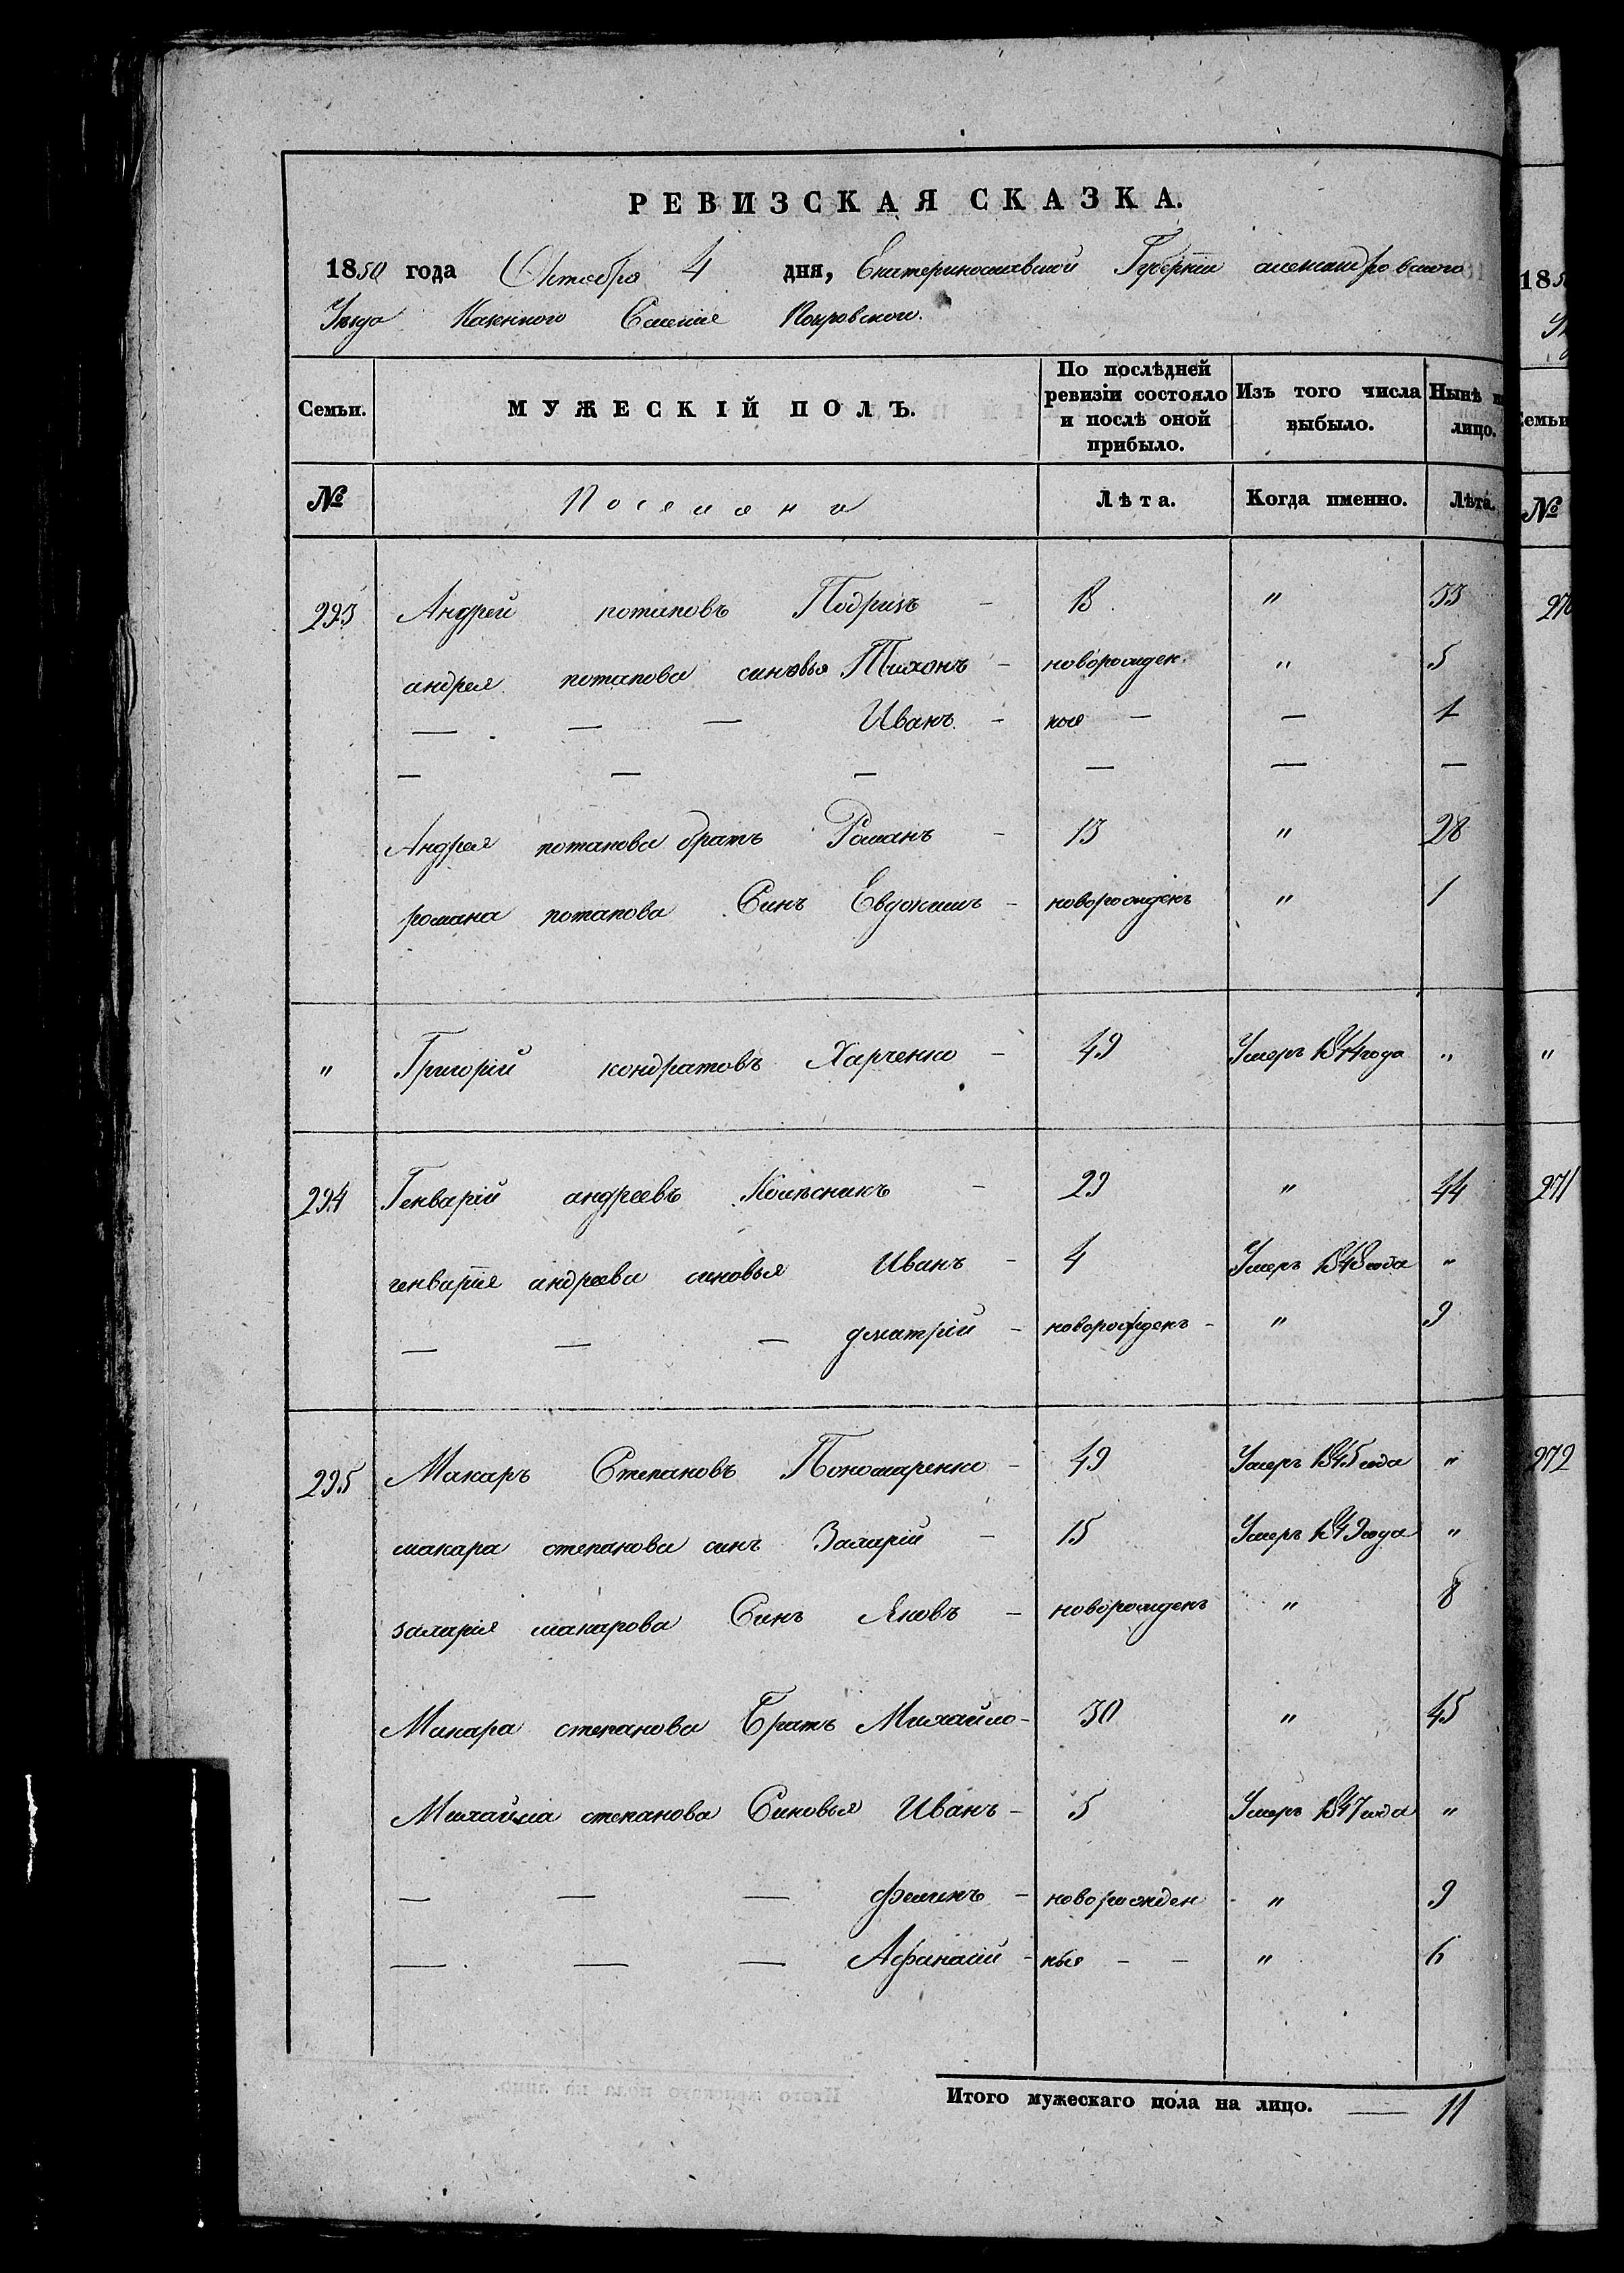 РЕВИЗСКАЯ СКАЗКА.
1850 года Октября 4 дня, Екатеринославской Губернiи александровского
Уезда Казенного Селенiя Покровского.
Семьи. МУЖЕСКIЙ ПОЛЪ. По послѣдней ревизiи состояло и послѣ оной прибыло. Изъ того числа выбыло. Нынѣ лицо.
№ Поселяни Лѣта. Когда именно. Лѣта.
293 Андрей потаповъ - 18 " 33
андрея потапова синовья Тихонъ - новорожден " 5
— — — Иванъ - ные — — 1
— — — — — —
Андрея потапова братъ Романъ - 13 " 28
романа потапова Синъ Евдокимъ - новорожденъ " 1
" Григорiй кондратовъ Харченко - 49 Умеръ 1844 года "
294 Генварiй андреевъ Колѣсникъ - 29 " 44
генварiя андреева синовья Иванъ - 4 Умеръ 1848 года "
— — — дмитрiй - новорожденъ - " 9
295 Макаръ Степановъ Пономаренко - 49 Умеръ 1845 года "
макара степанова синъ Захарiй - 15 Умеръ 1849 года "
захарiя макарова Синъ Яковъ - новорожденъ " 8
Макара степанова Братъ Михайло - 30 " 45
Михайла степанова Синовья Иванъ - 5 Умеръ 1847 года "
— — — филипъ - новорожден - " 9
— — — Афанасiй - ные - - " 6
Итого мужескаго пола на лицо. — 11
185
Семьи
№
270
"
271
272